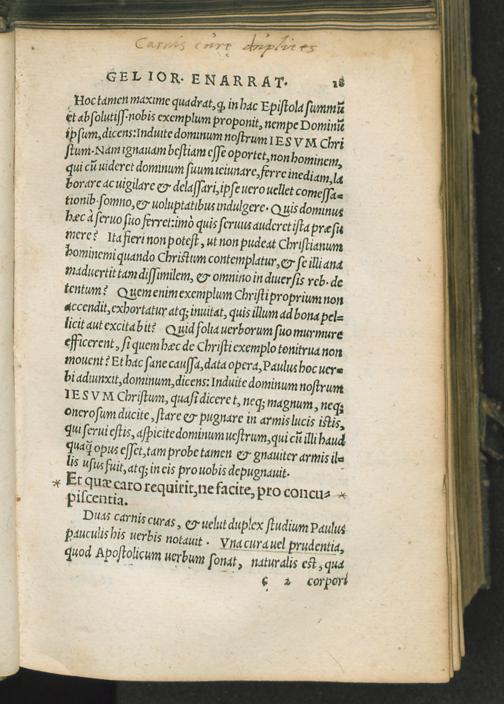 Carnis curę duplices
GELIOR· ENARRAT· 28
Hoc tamen maxime quadrat, q, in hac Epistola summū
et absolutiss· nobis exemplum proponit, nempe Dominū
ipsum, dicens: Induite dominum nostrum IESVM Chri
stum· Nam ignauam bestiam esse oportet, non hominem,
qui cū uideret dominum suum ieiunare, ferre inediam, la
borare ac uigilare & delassari, ipse uero uellet comessa=
tionib· somno, & uoluptatibus indulgere· Quis dominus
hæc à seruo suo ferret: imò quis seruus auderet ista præsu
mere? Ita fieri non potest, ut non pudeat Christianum
hominem quando Christum contemplatur, & se illi ani
maduertit tam dissimilem, & omnino in diuersis reb· de
tentum? Quem enim exemplum Christi proprium non
accendit, exhortatur atq; inuitat, quis illum ad bona pel=
licit aut excitabit? Quid folia uerborum suo murmure
efficerent, si quem hæc de Christi exemplo tonitrua non
mouent? Et hac sane caussa, data opera, Paulus hoc uer=
bi adiunxit, dominum, dicens: Induite dominum nostrum
IESVM Christum, quasi diceret, neq; magnum, neq;
onerosum ducite, stare & pugnare in armis lucis istis,
qui serui estis, aspicite dominum uestrum, qui cū illi haud
quaq̃ opus esset, tam probe tamen & gnauiter armis il=
lis usus fuit, atq; in eis pro uobis depugnauit·
* Et quæ caro requirit, ne facite, pro concu- *
piscentia.
Duas carnis curas, & uelut duplex studium Paulus
pauculis his uerbis notauit· Vna cura uel prudentia,
quod Apostolicum uerbum sonat, naturalis est, qua
ç 2 corpori